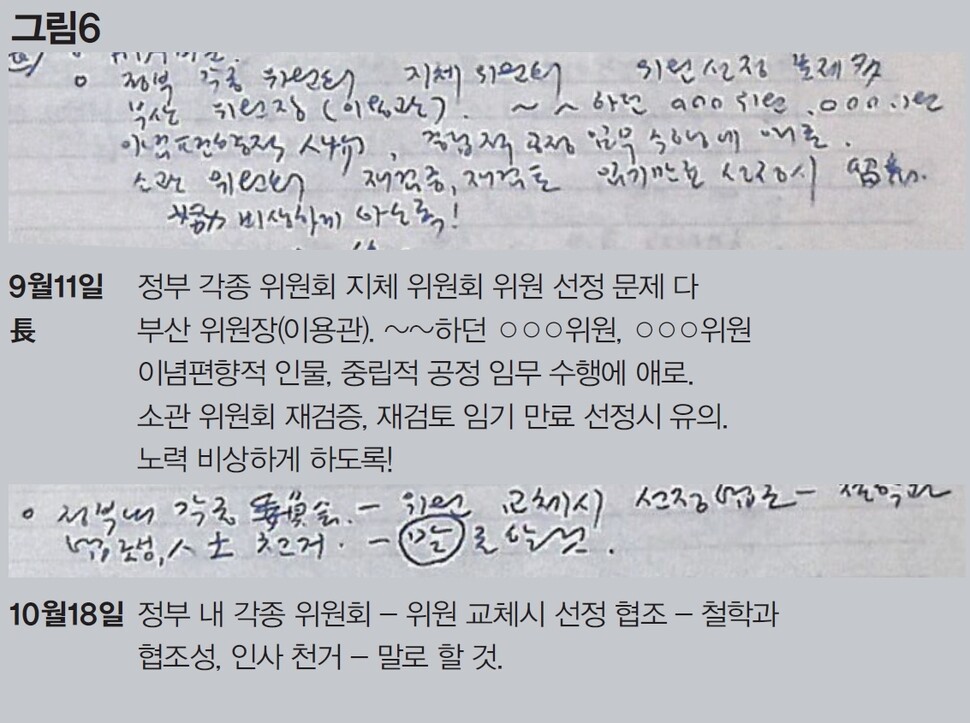 그림6
정부 각종 위원회 지체 위원회 위원 선정 문제 多
부산 위원장(이용관). ~ ~ 하던 ooo위원. ooo위원
소관 위원회 재검증, 재검토 임기만료 선정시 留意.
努力 비상하게 하도록!
9월11일 정부 각종 위원회 지체 위원회 위원 선정 문제 다
長 부산 위원장(이용관). ～～하던 ○○○위원, ○○○위원
이념편향적 인물, 중립적 공정 임무 수행에 애로.
소관 위원회 재검증, 재검토 임기 만료 선정시 유의.
노력 비상하게 하도록!
정부내 각종 委員会. - 위원 교체시 선정협조 - 철학과
협조성, 人士 천거. - 말로 할 것.
10월18일 정부 내 각종 위원회 – 위원 교체시 선정 협조 – 철학과
협조성, 인사 천거 – 말로 할 것.